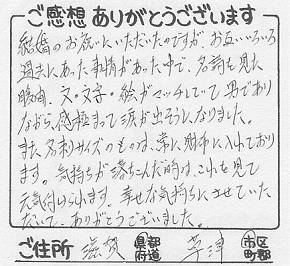 ご感想ありがとうございます
結婚のお祝いにいただいたのですが、お互いいろいろ
過去にあった事情があった中で、名詩を見た
瞬間、文・文字・絵がマッチしていて男であり
ながら、感極まって涙が出そうになりました。
また、名刺サイズのものは、常に財布に入れており
ます。気持ちが落ちこんだ時は、これを見て
元気付けられます。幸せな気持ちにさせていた
だいて、ありがとうございました。
ご住所 滋賀 都道府県 草津 市区町郡